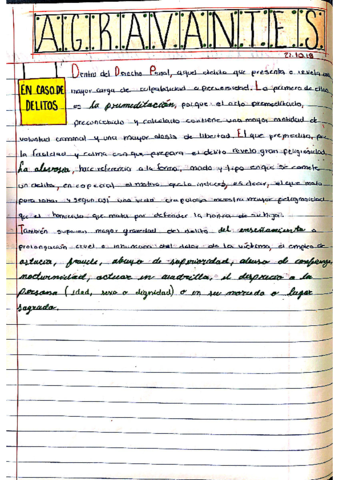 AGRAVANTES
21.10.19
EN CASO DE
DELITOS
Dentro del Derecho Penal, aquel delito que presenta o revela una
mayor carga de culpabilidad o perversidad. La primera de ellas
es la premeditación, porque el acto premeditado,
preconcebido y calculado contiene una mayor cantidad de
voluntad criminal y una mayor dosis de libertad. El que premedita, por
la frialdad y calma con que prepara el delito revela gran peligrosidad.
La alevosía, hace referencia a la forma, modo y tipo en que se comete
un delito, en especial el motivo que lo induce, es decir, el que mata
para robar y según así una vida
que el homicida que mata por defender la honra de su hija.
También suponen mayor gravedad del delito del ensañamiento o
prolongación cruel e inhumana del dolor de la víctima, el empleo de
astucia, fraude, abuso de superioridad, abuso de confianza,
nocturnidad, actuar en cuadrilla, el desprecio a la
persona (edad, sexo o dignidad) o en su morada o lugar
sagrado.